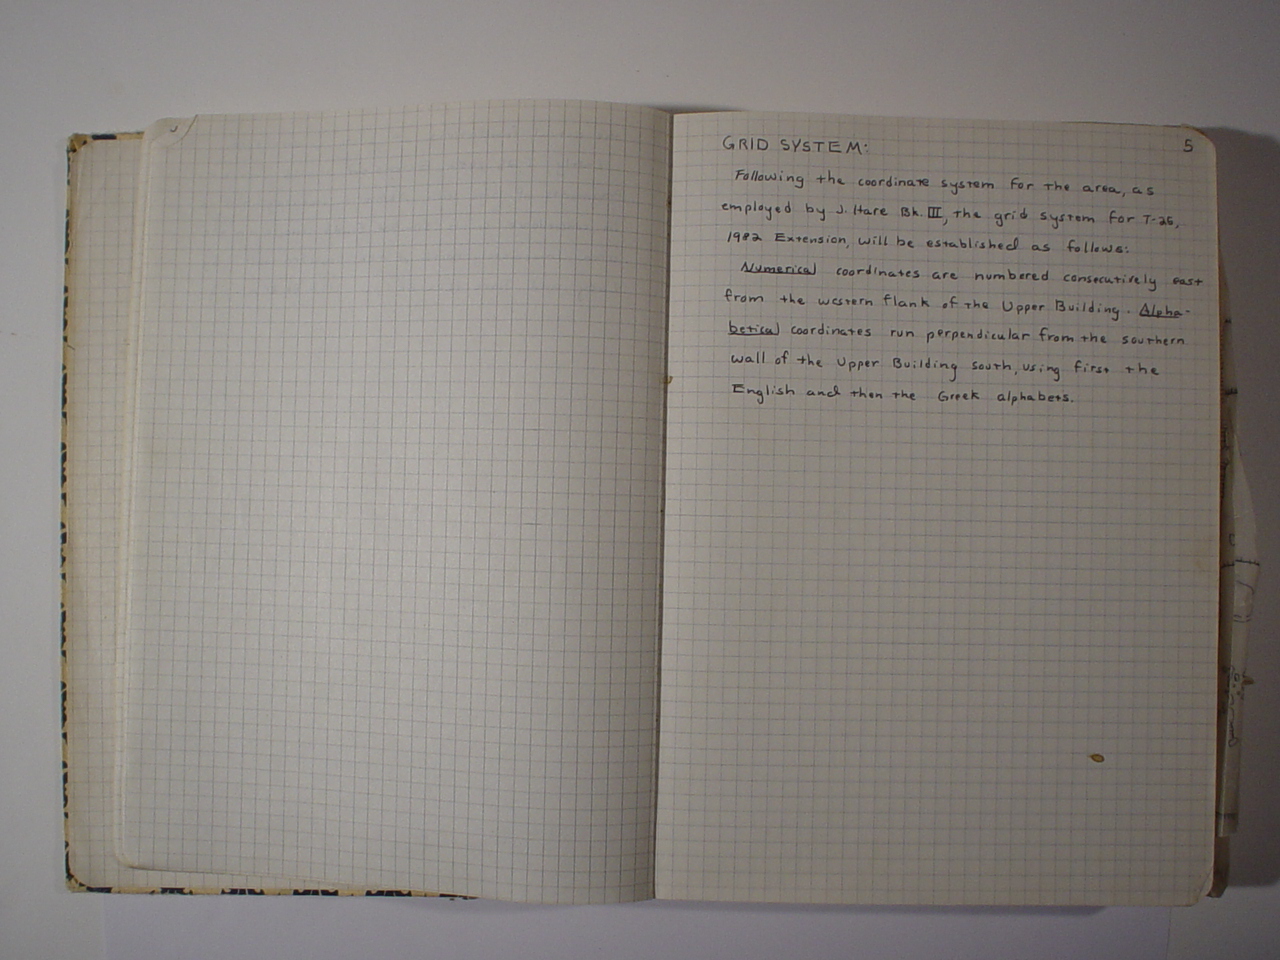 5
GRID SYSTEM:
Following the coordinate system for the area, as
employed by J. Hare Bk. III, the grid system for T-26,
1982 Extension, will be established as follows:
Numerical coordinates are numbered consecutively east
from the western flank of the Upper Building. Alpha-
betical coordinates run perpendicular from the southern
wall of the Upper Building south, using first the
English and then the Greek alphabets.